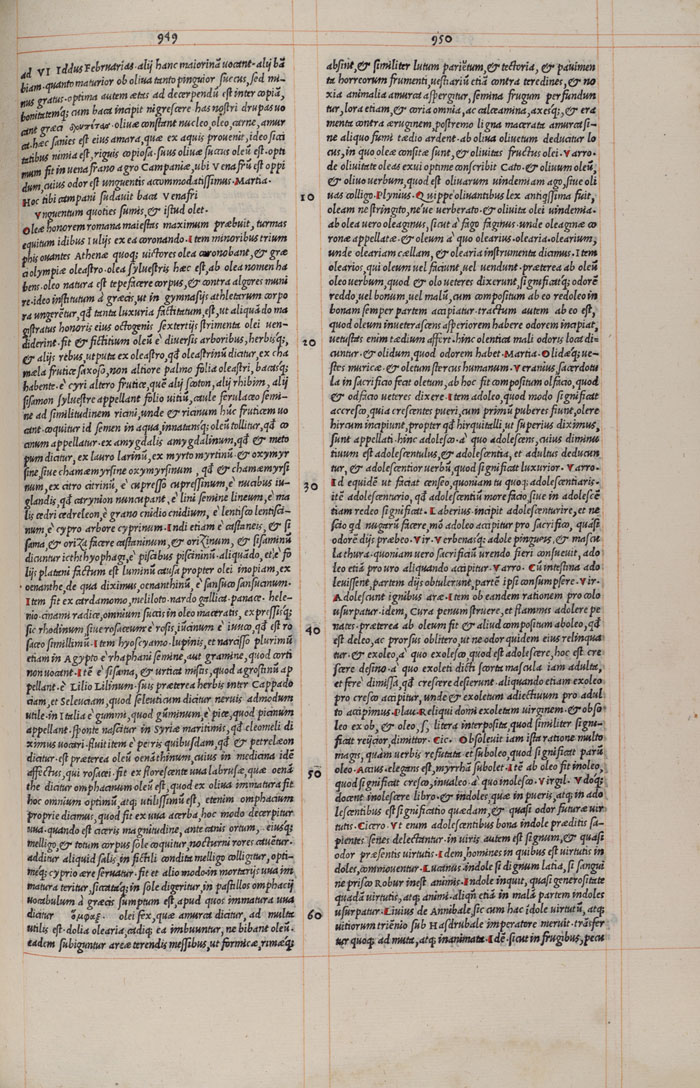 949
ad VI Iddus Februarias·alij hanc maiorinā uocant·alij bā
biam·quanto maturior ob oliua tanto pinguior succus, sed mi-
nus gratus·optima autem ætas ad decerpendū est inter copiā,
bonitatemq; cum baca incipit nigrescere has nostri drupas uo
cant græci oliuæ constant nucleo, oleo, carne, amur
ca·hæc sanies est eius amara, quæ ex aquis prouenit, ideo sicci
tatibus minima est, riguis copiosa·suus oliuæ succus oleū est·opti
mum fit in uenafrano agro Campaniæ, ubi Venafrū est oppi
dum, cuius odor est unguentis accommodatissimus·Martia·
Hoc tibi campani sudauit baca Venafri
Vnguentum quoties sumis, & istud olet·
Oleæ honorem romana maiestas maximum præbuit, turmas
equitum idibus Iulijs ex ea coronando·Item minoribus trium
phis ouantes Athenæ quoq; uictores olea coronabant, & græ
ci olympiæ oleastro·olea syluestris hæc est, ab olea nomen ha
bens·oleo natura est tepefacere corpus, & contra algores muni
re·ideo institutum à græcis, ut in gymnasijs athletarum corpo
ra ungerētur, qđ tanta luxuria factitatum, est, ut aliquādo ma
gistratus honoris eius octogenis sextertijs strimenta olei uen-
diderint·fit & fictitium oleū è diuersis arboribus, herbisq;,
& alijs rebus, utputa ex oleastro, qđ oleastrinū dicitur, ex cha
mælea frutice saxoso, non altiore palmo folia oleastri, bacasq;
habente·è cyri altero frutice, quē alij scoton, alij rhibim, alij
sisamon syluestre appellant folio uitiū, caule ferulaceo semi-
ne ad similitudinem ricini, unde & ricinum hūc fruticem uo
cant·coquitur id semen in aqua, innatansq; oleū tollitur, qđ ci
cinum appellatur·ex amygdalis amygdalinum, qđ & meto
pum dicitur, ex lauro laurinū, ex myrto myrtinū & oxymyr
sine siue chamæmyrsine oxymyrsinum, qđ & chamæmyrsi
num, ex citro citrinū, è cupresso cupressinum, è nucibus iu-
glandis, qđ carynion nuncupant, è lini semine lineum, è ma
lis cedri cedreleon, è grano cnidio cnidium, è lentisco lentisci-
num, è cypro arbore cyprinum·Indi etiam è castaneis, & si
sama, & oriza facere castaninum, & orizinum, & sisaminū
dicuntur·icththyophagi, è piscibus piscininū·aliquādo, et, è fo
lijs platani factum est luminū causa propter olei inopiam, ex
oenanthe, de qua diximus, oenanthinū, è sansuco sansucinum·
Item fit ex cardamomo, meliloto·nardo gallica·panace·hele-
nio·cinami radice, omnium succis in oleo maceratis, expressisq;
sic rhodinum siue rosaceum è rosis, iūcinum è iunco, qđ est ro
saceo simillimū·Item hyoscyamo·lupinis, et narcisso plurimū
etiam in Aegypto è rhaphani semine, aut gramine, quod corti
non uocant·Itē è sisama, & urtica mistus, quod agrostinū ap
pellant·è Lilio Lilinum·suis præterea herbis inter Cappado
ciam, et Seleuciam, quod seleuticum dicitur neruis admodum
utile·in Italia è gummi, quod gūminum, è pice, quod picinum
appellant·sponte nascitur in Syriæ maritimis, qđ eleomeli di
ximus uocari·fluit item è petris quibusdam, qđ & petreleon
dicitur·est præterea oleū oenāthinum, cuius in medicina idē
affectus, qui rosacei·fit ex florescente uua labrusce, quæ oenā
the dicitur omphacinum oleū est, quod ex oliua immatura fit
hoc omnium optimū, atq; utilissimū est, etenim omphacium
proprie dicimus, quod fit ex uua acerba, hoc modo decerpitur
uua·quando est ciceris magnitudine, ante canis ortum, eiusq;
melligo, & totum corpus sole coquitur, nocturni rores cauētur·
additur aliquid salis, in fictili condita melligo colligitur, opti-
meq; cyprio ære seruatur·fit et alio modo·in mortarijs uua im
matura teritur, siccataq; in sole digeritur, in pastillos omphacij
uocabulum à græcis sumptum est, apud quos immatura uua
dicitur ὄμφαξ· olei fex, quæ amurca dicitur, ad multa
utilis est·dolia olearia, cadiq; ea imbuuntur, ne bibant oleū·
eadem subiguntur areæ terendis messibus, ut formicæ, rimæq;
10
20
30
40
50
60
950
absint, & similiter lutum parietum, & tectoria, & pauimen
ta horreorum frumenti, uestiariū etiā contra teredines, & no
xia animalia amurca aspergitur, semina frugum perfundun
tur, lora etiam, & coria omnia, ac calceamina, axesq;, & era
menta contra æruginem, postremo ligna macerata amurca si-
ne aliquo fumi tædio ardent·ab oliua oliuetum deducitur lo
cus, in quo oleæ consitæ sunt, & oliuitas fructus olei·Varro·
de oliuitate oleas exui optime conscribit Cato·& oliuum oleū,
& oliuo uerbum, quod est oliuarum uindemiam ago, siue oli
uas colligo·Plynius·Quippe oliuantibus lex antiqssima fuit,
oleam ne stringito, neue uerberato·& oliuita olei uindemia·
ab olea uero oleaginus, sicut à fago faginus·unde oleaginæ co
ronæ appellatæ·& oleum à quo olearius·olearia·olearium,
unde oleariam cællam, & olearia instrumenta dicimus·Item
olearios, qui oleum uel faciunt, uel uendunt·præterea ab oleū
oleo uerbum, quod & olo ueteres dixerunt, significatq; odorē
reddo, uel bonum, uel malū, cum compositum ab eo redoleo in
bonam semper partem accipitur·tractum autem ab eo est,
quod oleum inueterascens asperiorem habere odorem incipiat,
uetustas enim tædium affert·hinc olenticet mali odoris loca di-
cuntur·& olidum, quod odorem habet·Martia·Olidæq; ue-
stes muricæ·& oletum stercus humanum·Veranius sacerdotu
la in sacrificio fecit oletum, ab hoc fit compositum olfacio, quod
& odfacio ueteres dixere·Item adoleo, quod modo significat
accresco, quia crescentes pueri, cum primū puberes fiunt, olere
hircum incipiunt, propter qđ hirquitelli, ut superius diximus,
sunt appellati·hinc adolesco·à quo adolescens, cuius diminu
tiuum est adolescentulus, & adolescentia, et adultus deducun
tur, & adolescentior uerbū, quod significat luxurior·Varro·
Id equidē ut faciat censeo, quoniam tu quoq; adolescentiaris·
itē adolescenturio, qđ adolescentiū more facio siue in adolescē
tiam redeo significat·Laberius·incipit adolescenturire, et ne
scio qđ nugarū facere, mō adoleo accipitur pro sacrifico, quasi
odorē dijs præbeo·Vir·Verbenasq; adole pingues, & mascu
la thura·quoniam uero sacrificiū urendo fieri consueuit, ado
leo etiā pro uro aliquando accipitur·Varro·Cū intestina ado
leuissent, partem dijs obtulerunt, partē ipsi consumpsere·Vir·
Adolescent ignibus aræ·Item ob eandem rationem pro colo
usurpatur·idem, Cura penum struere, et flammis adolere pe
nates·præterea ab oleum fit & aliud compositum aboleo, qđ
est deleo, ac prorsus oblitero, ut ne odor quidem eius relinqua
tur·& exoleo, à quo exolesco, quod est adolescere, hoc est cre
scere desino·à quo exoleti dicti scorta mascula iam adulta,
et fere dimissa, qđ crescere desierunt·aliquando etiam exoleo
pro cresco accipitur, unde & exoletum adiectiuum pro adul
to accipimus·Plau·Reliqui domi exoletam uirginem·& obso
leo ex ob, & oleo, s, litera interposita quod similiter signi-
ficat reijcior, dimittor·Cic·Obsoleuit iam ista ratione multo
magis, quàm uerbis refutata·et suboleo, quod significat parū
oleo·Accius·ælegans est, myrrhā subolet·Itē ab oleo fit inoleo,
quod significat cresco, inualeo·à quo inolesco·Virgil·Vdoq;
docent inolescere libro·& indoles quæ in pueris, atq; in ado
lescentibus est significatio quædam, & quasi odor futuræ uir
tutis·Cicero·Vt enum adolescentibus bona indole præditis sa-
pientes senes delectantur·in uiris autem est signum, & quasi
odor præsentis uirtutis·Idem, homines in quibus est uirtutis in
doles, commouentur·Lucanus·indole si dignum latia, si sangui
ne prisco Robur inest animis·Indole inquit, quasi generositate
quadā uirtutis, atq; animi·aliqñ etiā in malā partem indoles
usurpatur·Liuius de Annibale, sic cum hac īdole uirtutū, atq;
uitiorum triēnio sub Hasdrubale imperatore meruit·trāsfer
tur quoq; ad muta, atq; inanimata·Idē·sicut in frugibus, pecu